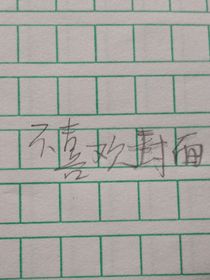 不喜欢封面